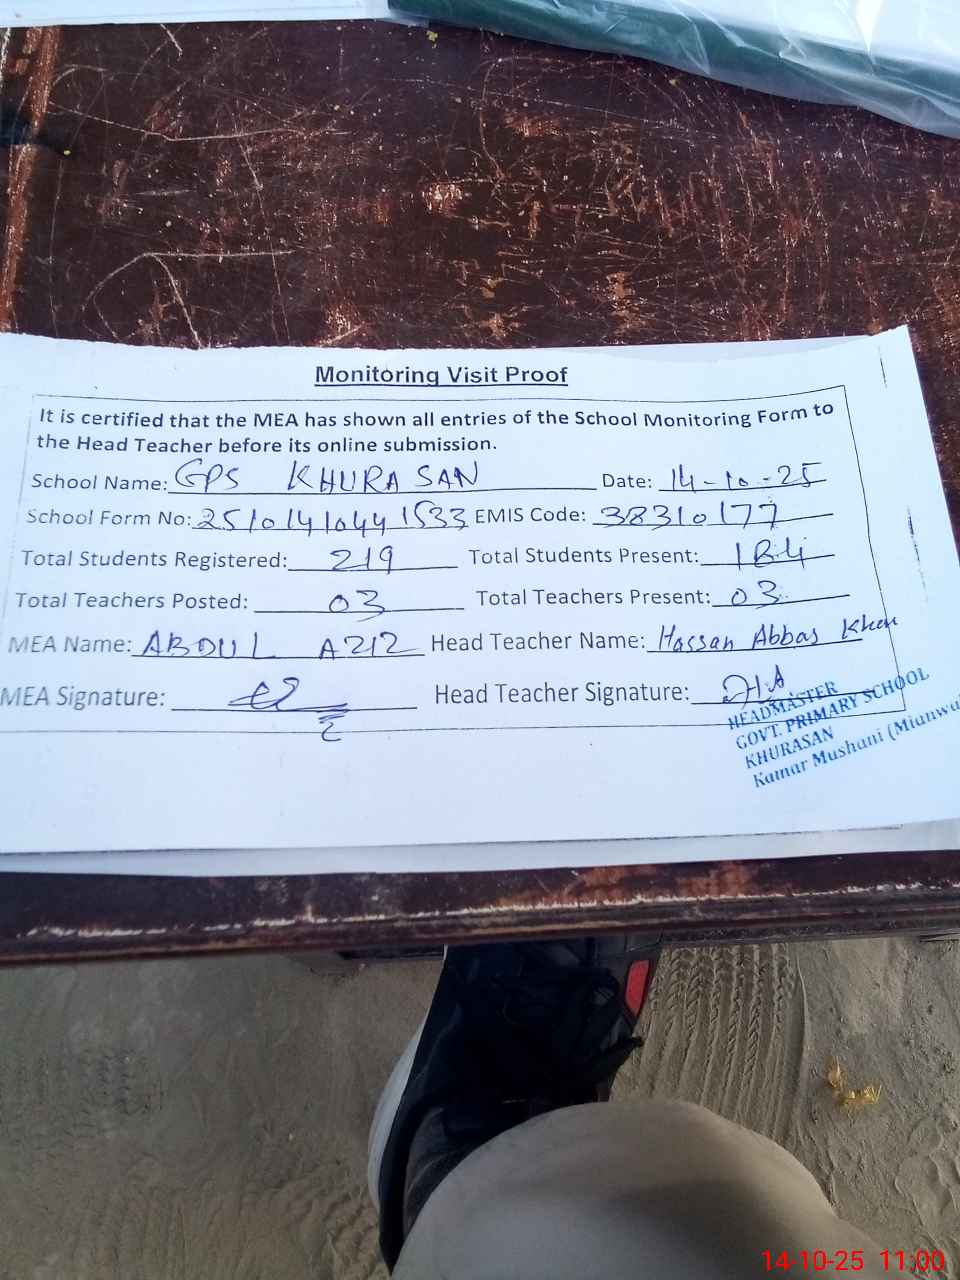 Monitoring Visit Proof
It is certified that the MEA has shown all entries of the School Monitoring Form to
the Head Teacher before its online submission.
School Name: GPS KHURASAN Date: 14-10-25
School Form No: 25101410441533 EMIS Code: 38310177
Total Students Registered: 219 Total Students Present: 184
Total Teachers Posted: 03 Total Teachers Present: 03
MEA Name: ABDUL AZIZ Head Teacher Name: Hassan Abbas Khan
MEA Signature: Head Teacher Signature:
HEADMASTER
GOVT. PRIMARY SCHOOL
KHURASAN
Kamar Mushani (Mianwal
14-10-25 11:00